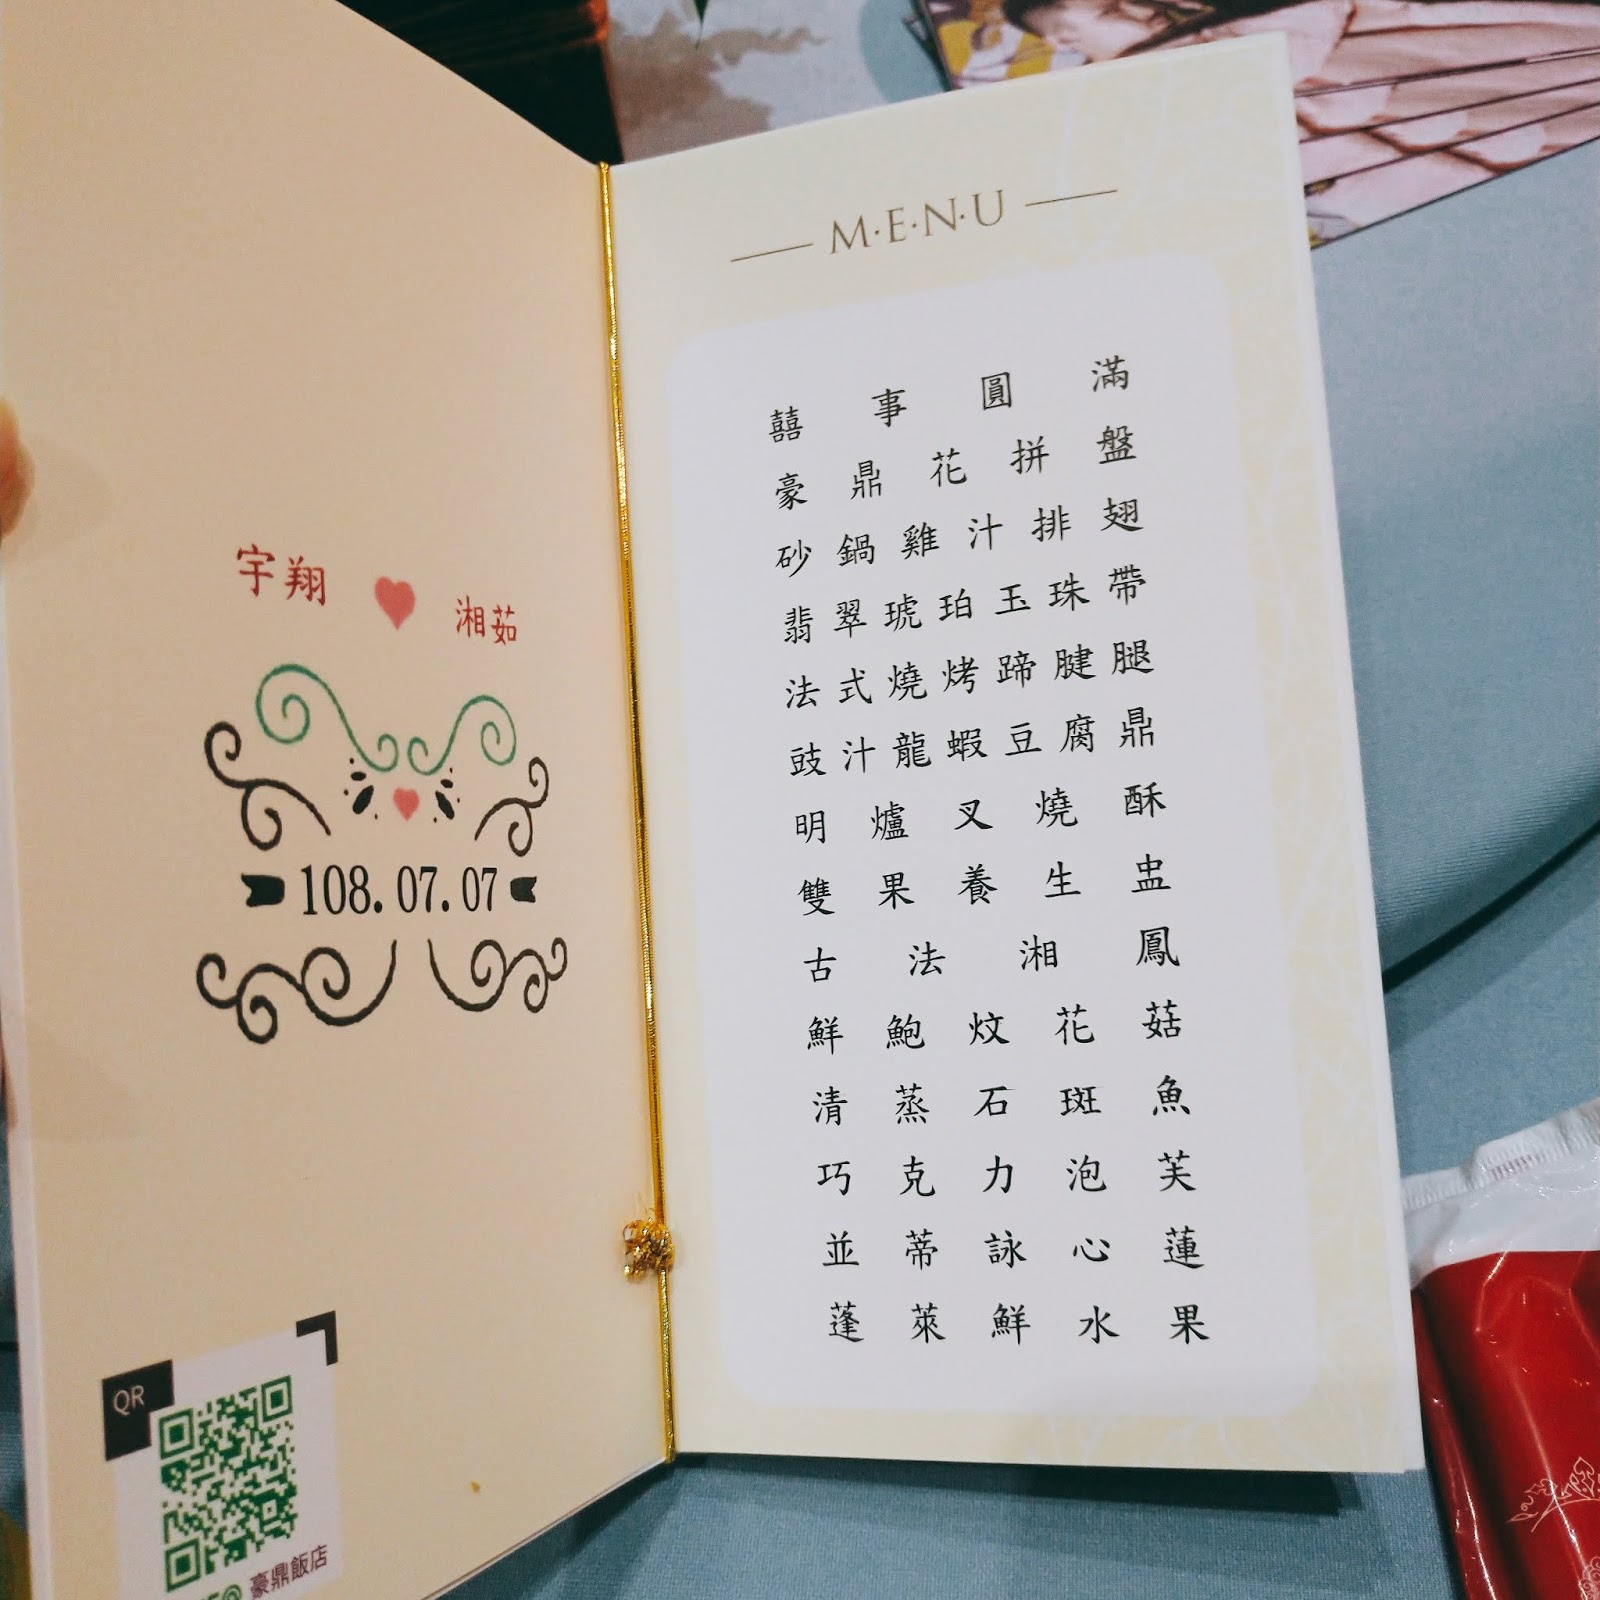 宇翔 湘茹
108.07.07
QR
豪鼎飯店
M·E·N·U
囍事圓滿
豪鼎花拼盤
砂鍋雞汁排翅
翡翠琥珀玉珠帶
法式燒烤蹄腱腿
豉汁龍蝦豆腐鼎
明爐叉燒酥
雙果養生盅
古法湘鳳
鮮鮑炆花菇
清蒸石斑魚
巧克力泡芙
並蒂詠心蓮
蓬萊鮮水果